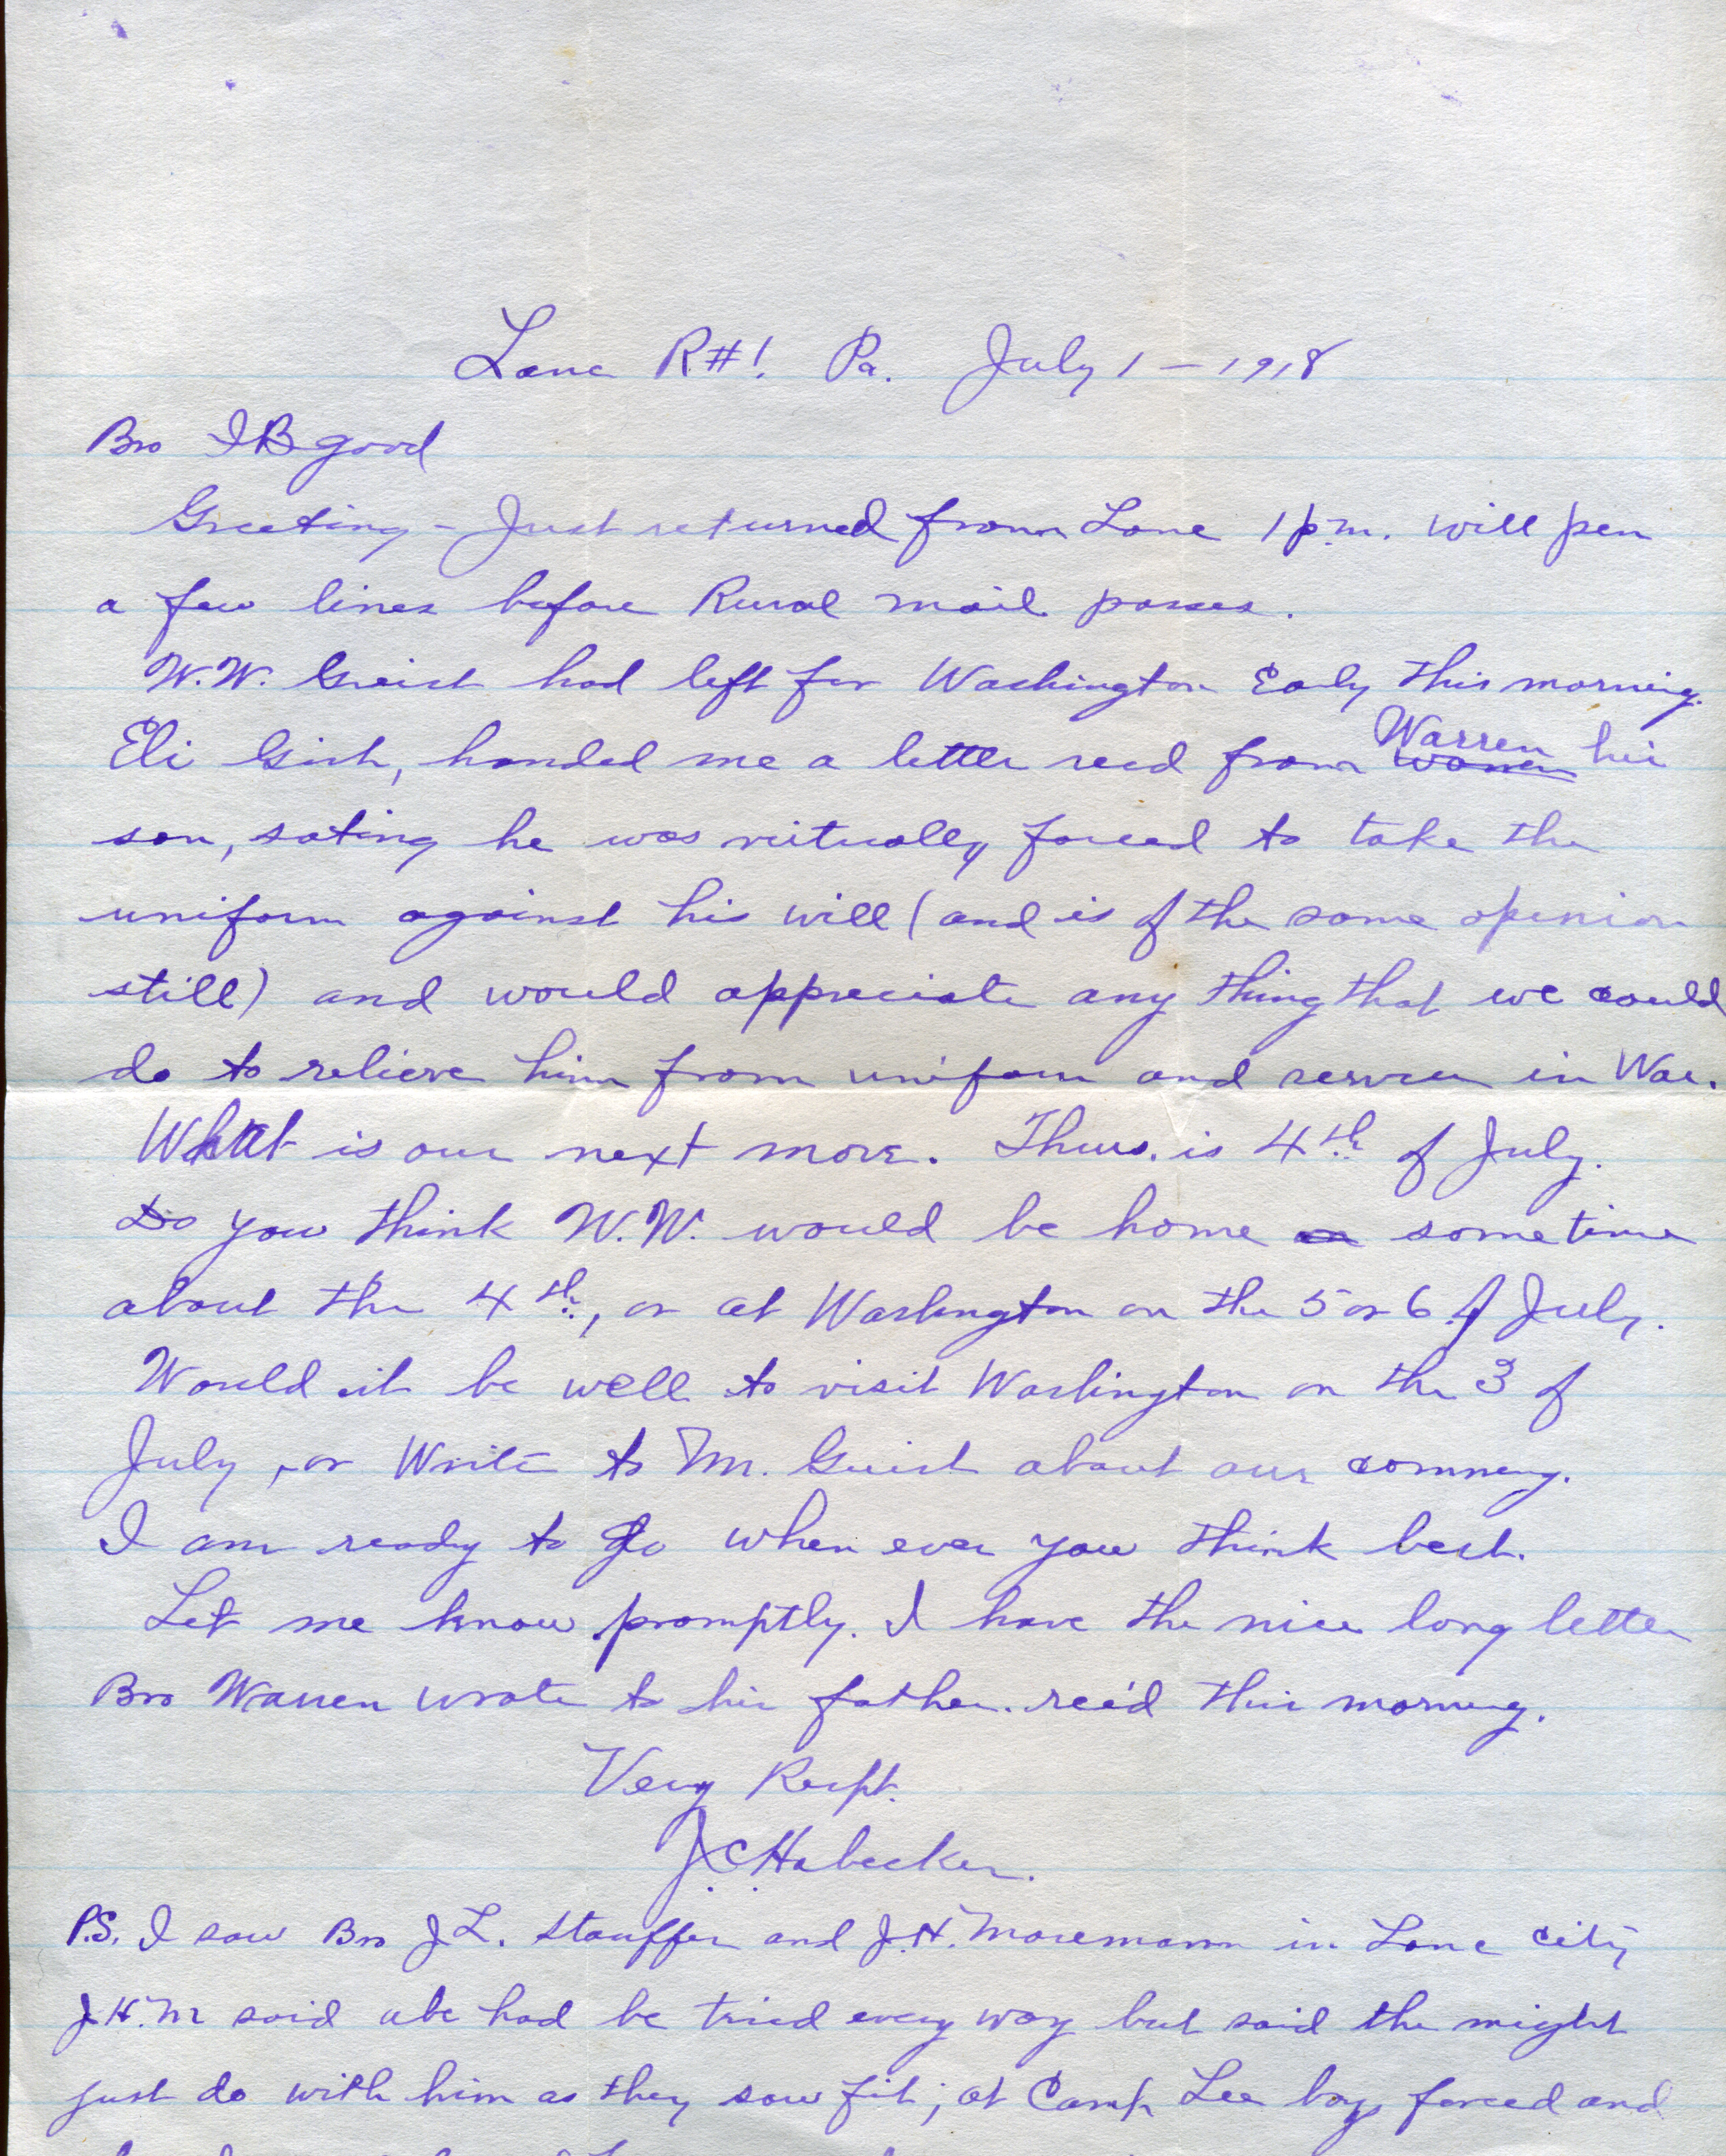 Lanc R#1. Pa. July 1 - 1918
Bro I B Good
Greeting - Just returned from Lanc 1 p.m. will pen
a few lines before Rural mail passes.
W.W. Griest had left for Washington Early this morning.
Eli Gish, handed me a letter recd from Warren his
son, sating he was virtually forced to take the
uniform against his will (and is of the same opinion
still) and would appreciate any thing that we could
do to relieve him from uniform and service in War.
What is our next move. Thurs. is 4th of July.
Do you think W.W. would be home sometime
about the 4th, or at Washington on the 5 or 6 of July.
Would it be well to visit Washington on the 3 of
July, or Write to M. Griest about our comming.
I am ready to go when ever you think best.
Let me know promptly. I have the nice long letter
Bro Warren wrote to his father. rec'd this morning.
Very Respt.
J.C. Habecker.
P.S. I saw Bro J L. Stauffer and J.H. Mosemann in Lanc city
J H. M said abe had be tried every way but said the might
just do with him as they saw fit; at Camp Lee boys forced and